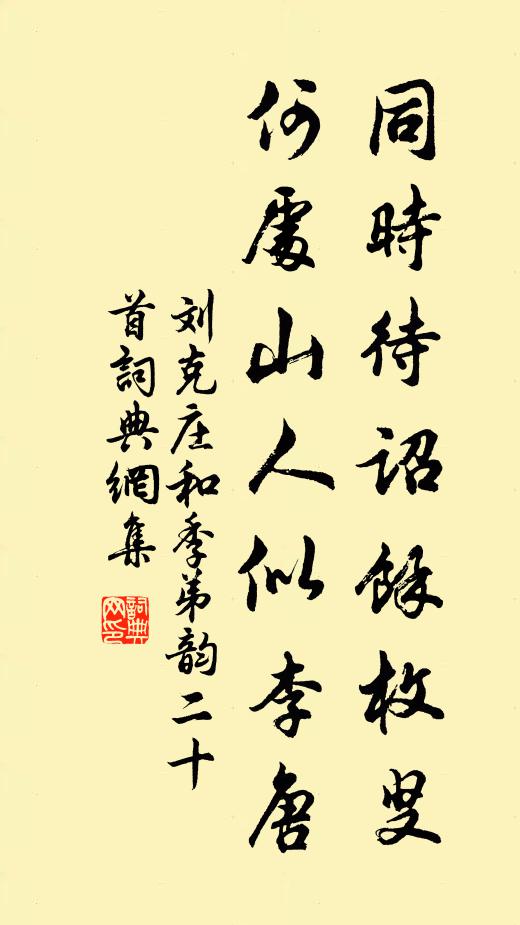 同時待詔餘枚叟
何處山人似李唐
刘克庄和季弟韵二十
首詞典網集
詞典网印